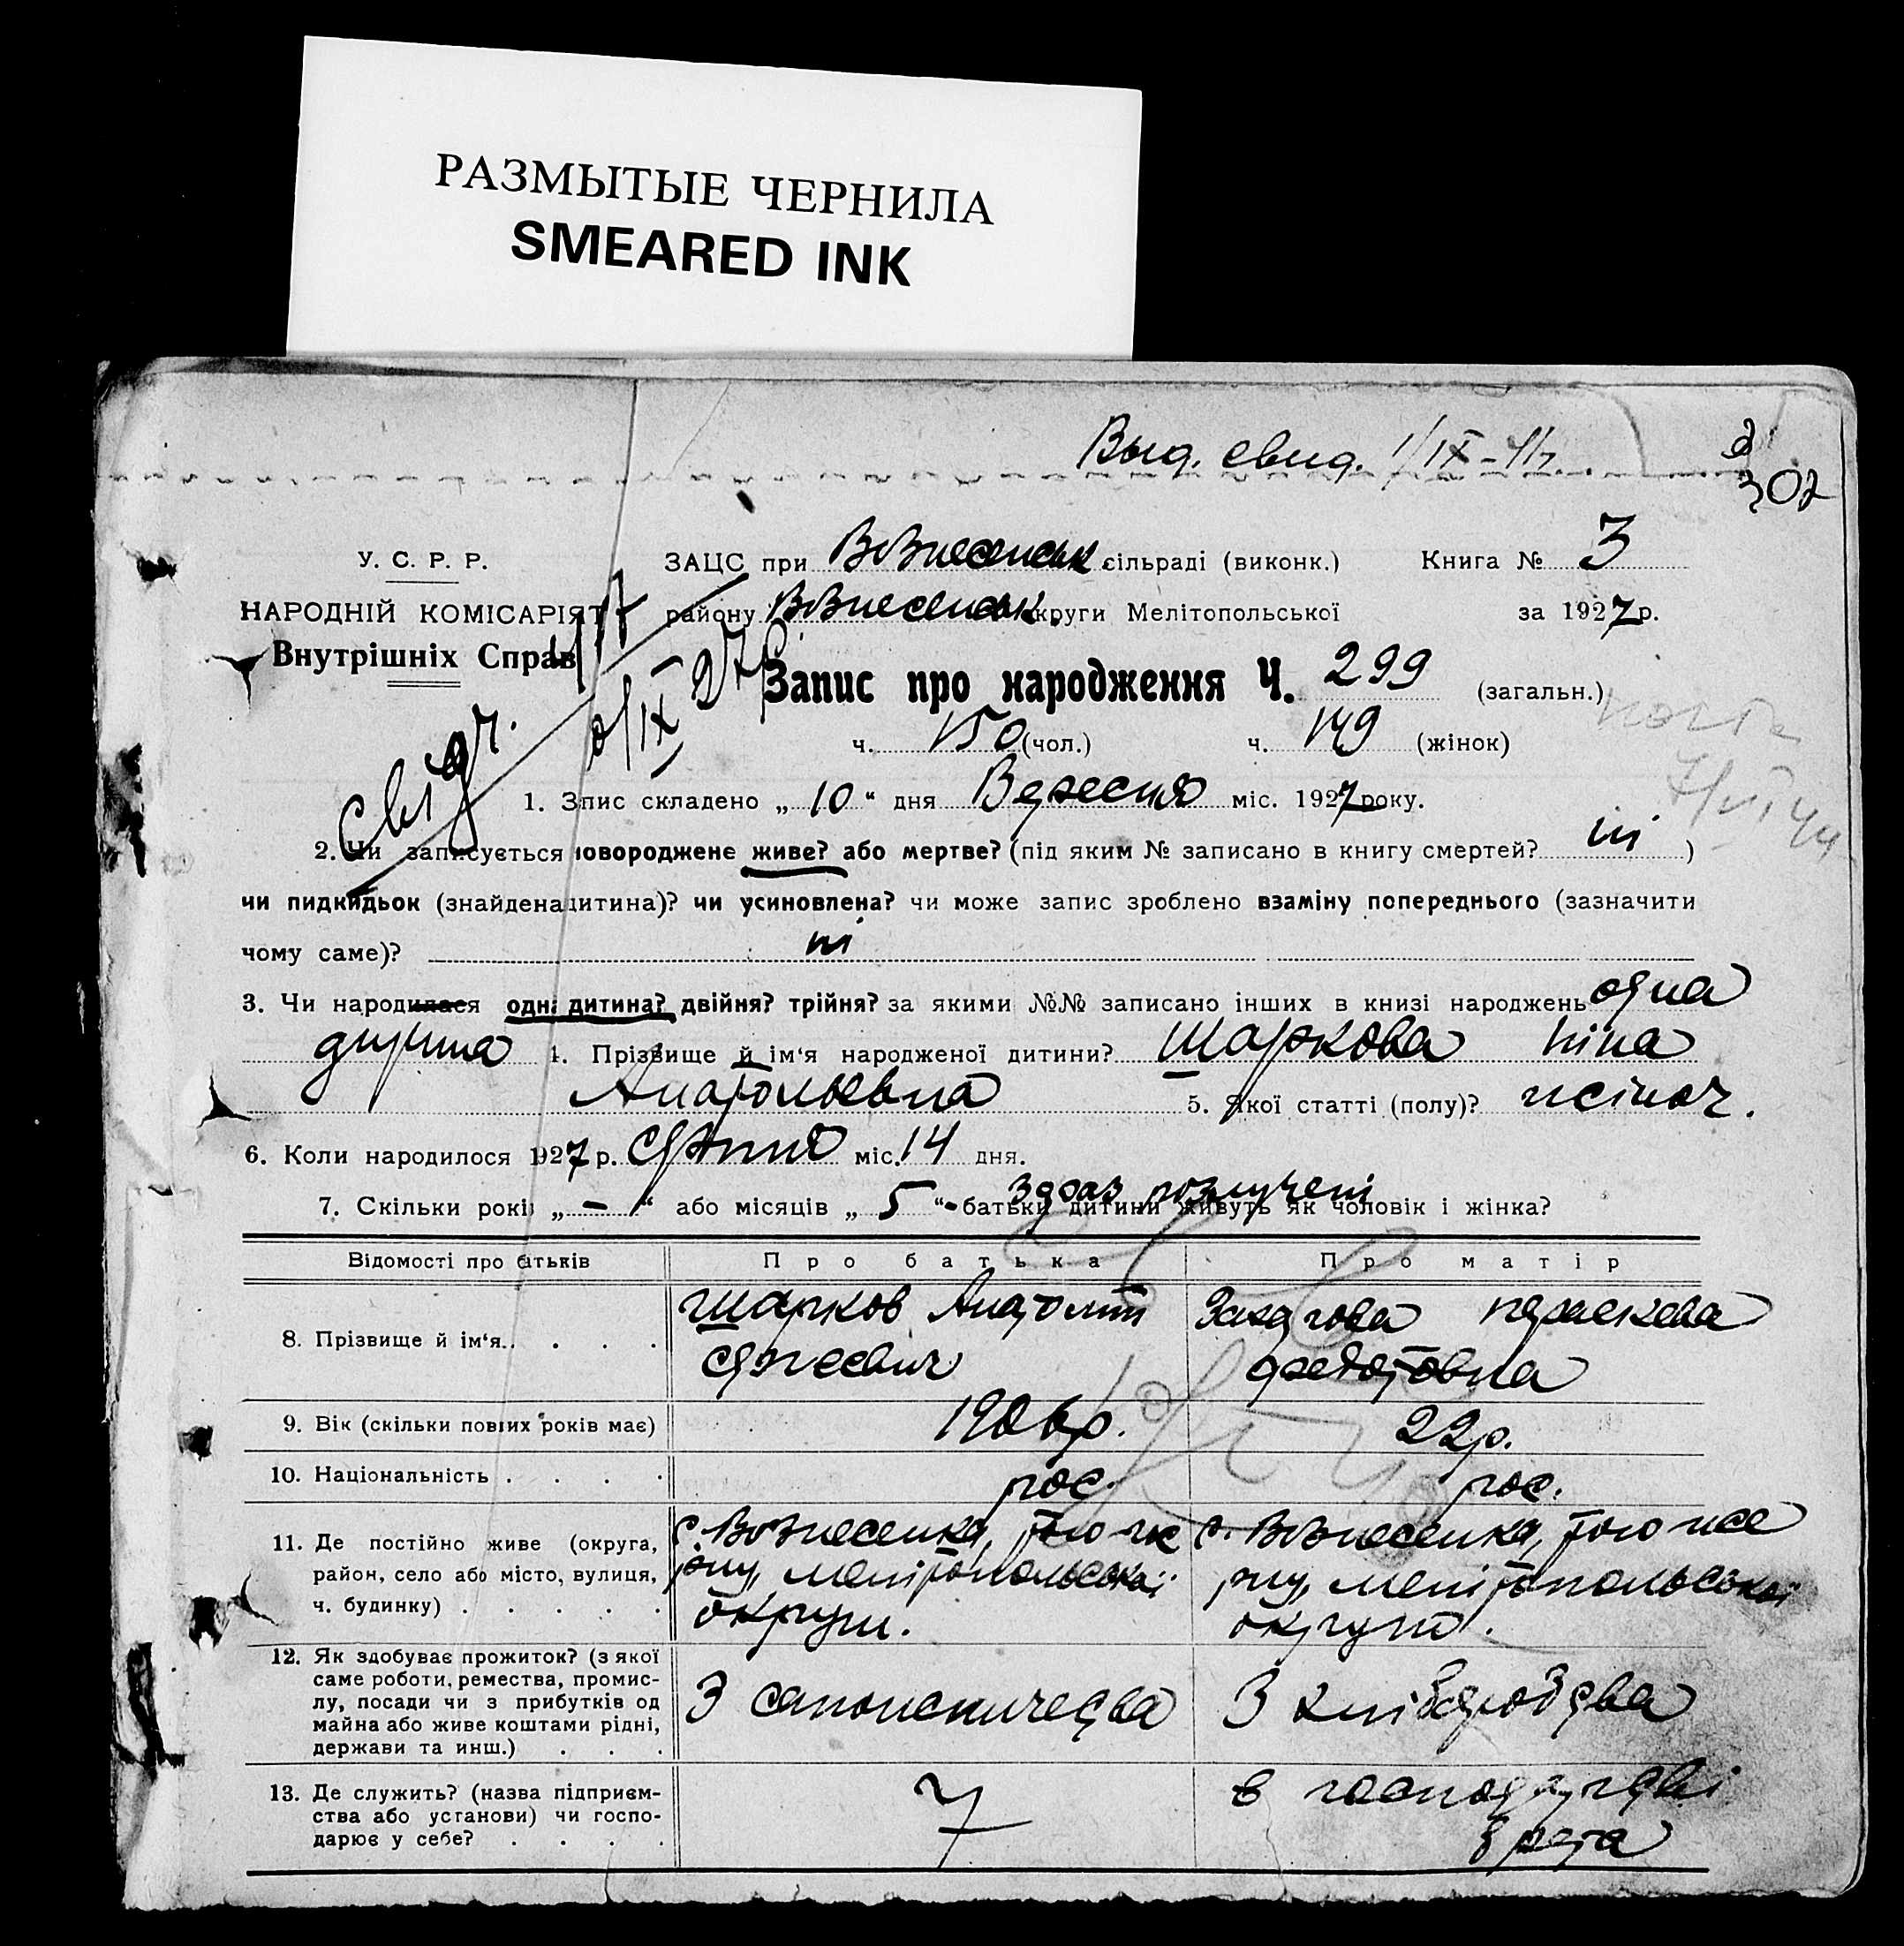 РАЗМЫТЫЕ ЧЕРНИЛА
SMEARED INK
Выд. свид. 1/IX-41г.
302
У. С. Р. Р.
НАРОДНІЙ КОМІСАРІЯТ
Внутрішніх Справ
ЗАЦС при Вознесенськ сільраді (виконк.) Книга № 3
району Вознесенськ округи Мелітопольської за 1927 р.
Запис про народження Ч. 299 (загальн.)
ч. 150 (чол.) ч. 149 (жінок)
1. Зпис складено „ 10 “ дня Вересня міс. 1927 року.
2. Чи записується новороджене живе? або мертве? (під яким № записано в книгу смертей? ні )
чи пидкидьок (знайдена дитина)? чи усиновлена? чи може запис зроблено взаміну попереднього (зазначити
чому саме)? ні
3. Чи народилася одна дитина? двійня? трійня? за якими №№ записано інших в книзі народжень одна
дитина 4. Прізвище й ім‘я народженої дитини? Шаркова Ніна
Анатольевна 5. Якої статті (полу)? жіноч.
6. Коли народилося 1927 р. Серпня міс. 14 дня.
зараз розлучені
7. Скільки років „ – “ або місяців „ 5 “ батьки дитини живуть як чоловік і жінка?
Відомості про батьків Про батька Про матір
8. Прізвище й ім‘я. Шарков Анатолій
Сергеевич
Параскева
Федотовна
9. Вік (скільки повних років має) 1906р. 22р.
10. Національність рос. рос.
11. Де постійно живе (округа, район, село або місто, вулиця, ч. будинку)
с. Вознесенка, того ж
р-ну, Мелітопольської
округи.
с. Вознесенка, того же
р-ну, Мелітопольської
округи.
12. Як здобуває прожиток? (з якої саме роботи, ремества, промислу, посади чи з прибутків од майна або живе коштами рідні, держави та инш.)
З
З хлібаробства
13. Де служить? (назва підприємства або установи) чи господарює у себе?
в господарстві